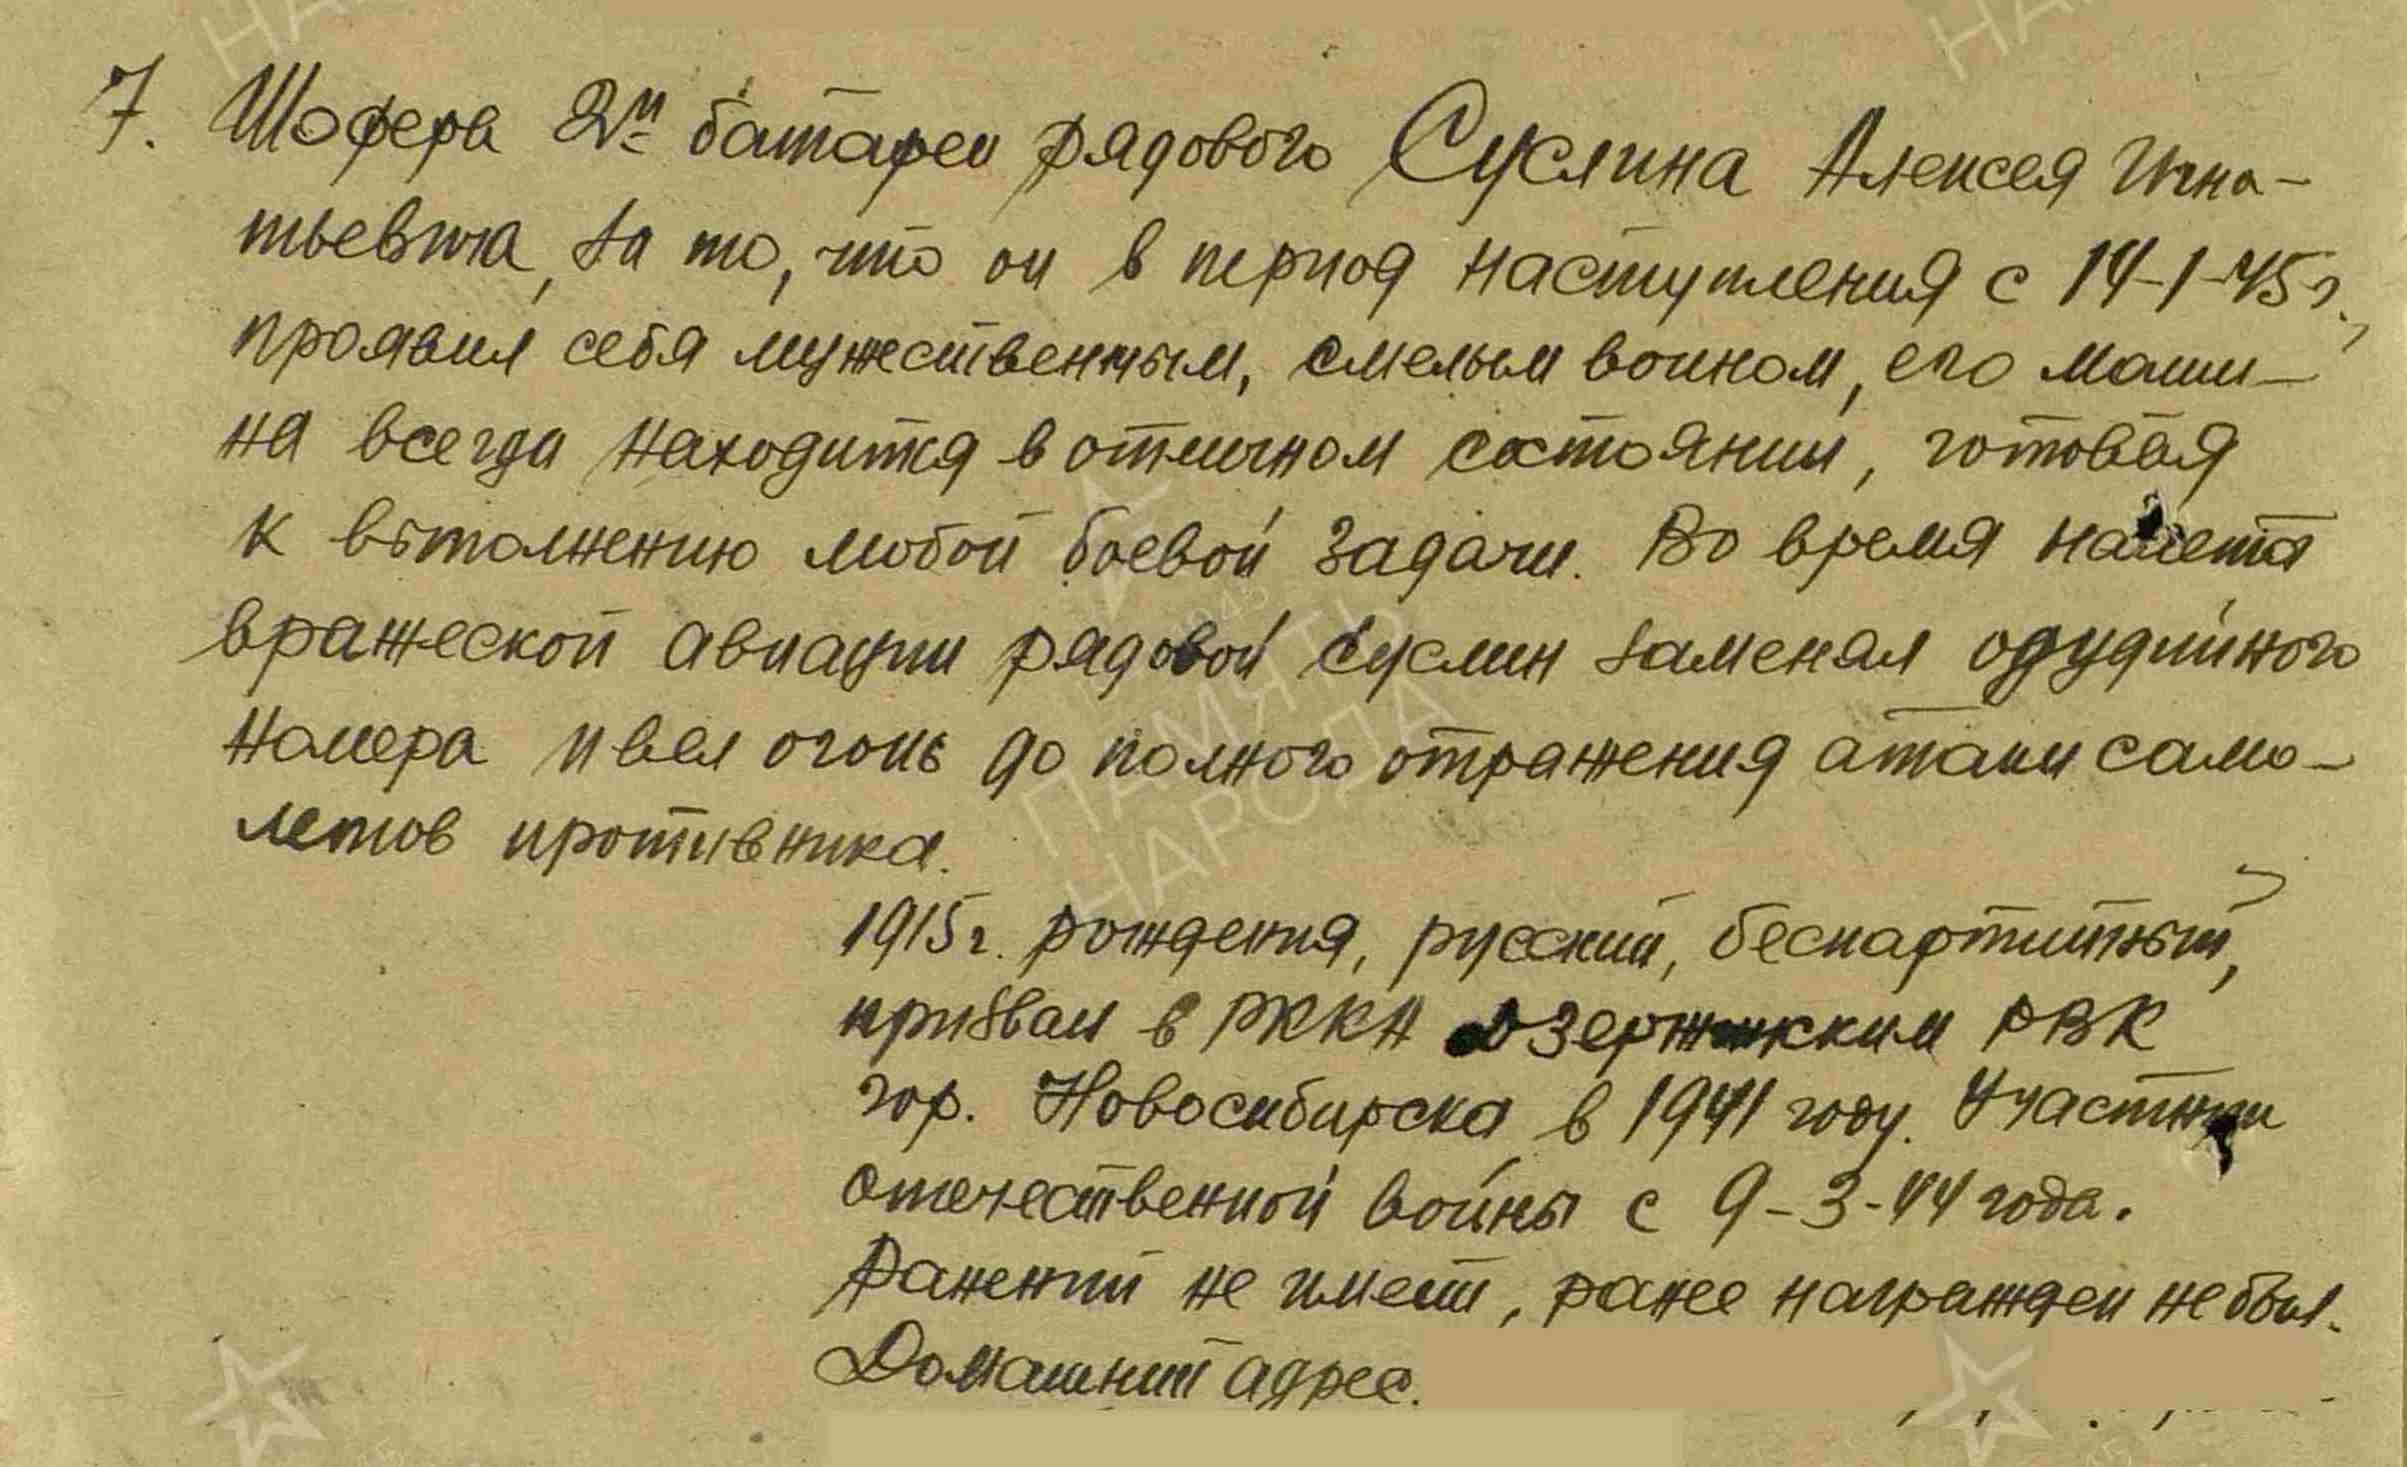 7. Шофера 2й батареи рядового Суслина Алексея Игна-
тьевича, за то, что он в период наступления с 14-1-45г.,
проявил себя мужественным, смелым воином, его маши-
на всегда находится в отличном состоянии, готовая
к выполнению любой боевой задачи. Во время налета
вражеской авиации рядовой Суслин заменял
номера и вел огонь до полного отражения атаки само-
летов противника.
1915г. рождения, русский, беспартийный,
призван в РККА Дзержинским РВК
гор. Новосибирска в 1941 году. Участник
отечественной войны с 9-3-44 года.
Ранений не имеет, ранее награжден не был.
Домашний адрес.
ПАМЯТЬ
НАРОДА